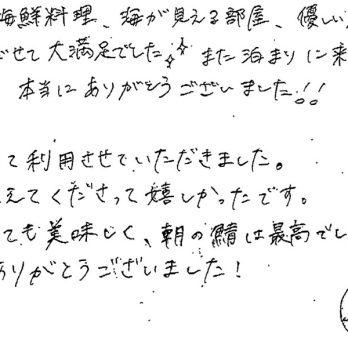 海鮮料理、海が見える部屋、優しい
せて大満足でした✨また泊まりに来
本当にありがとうございました!!
て利用させていただきました。
えてくださって嬉しかったです。
ても美味しく、朝の鯖は最高でし
ありがとうございました!